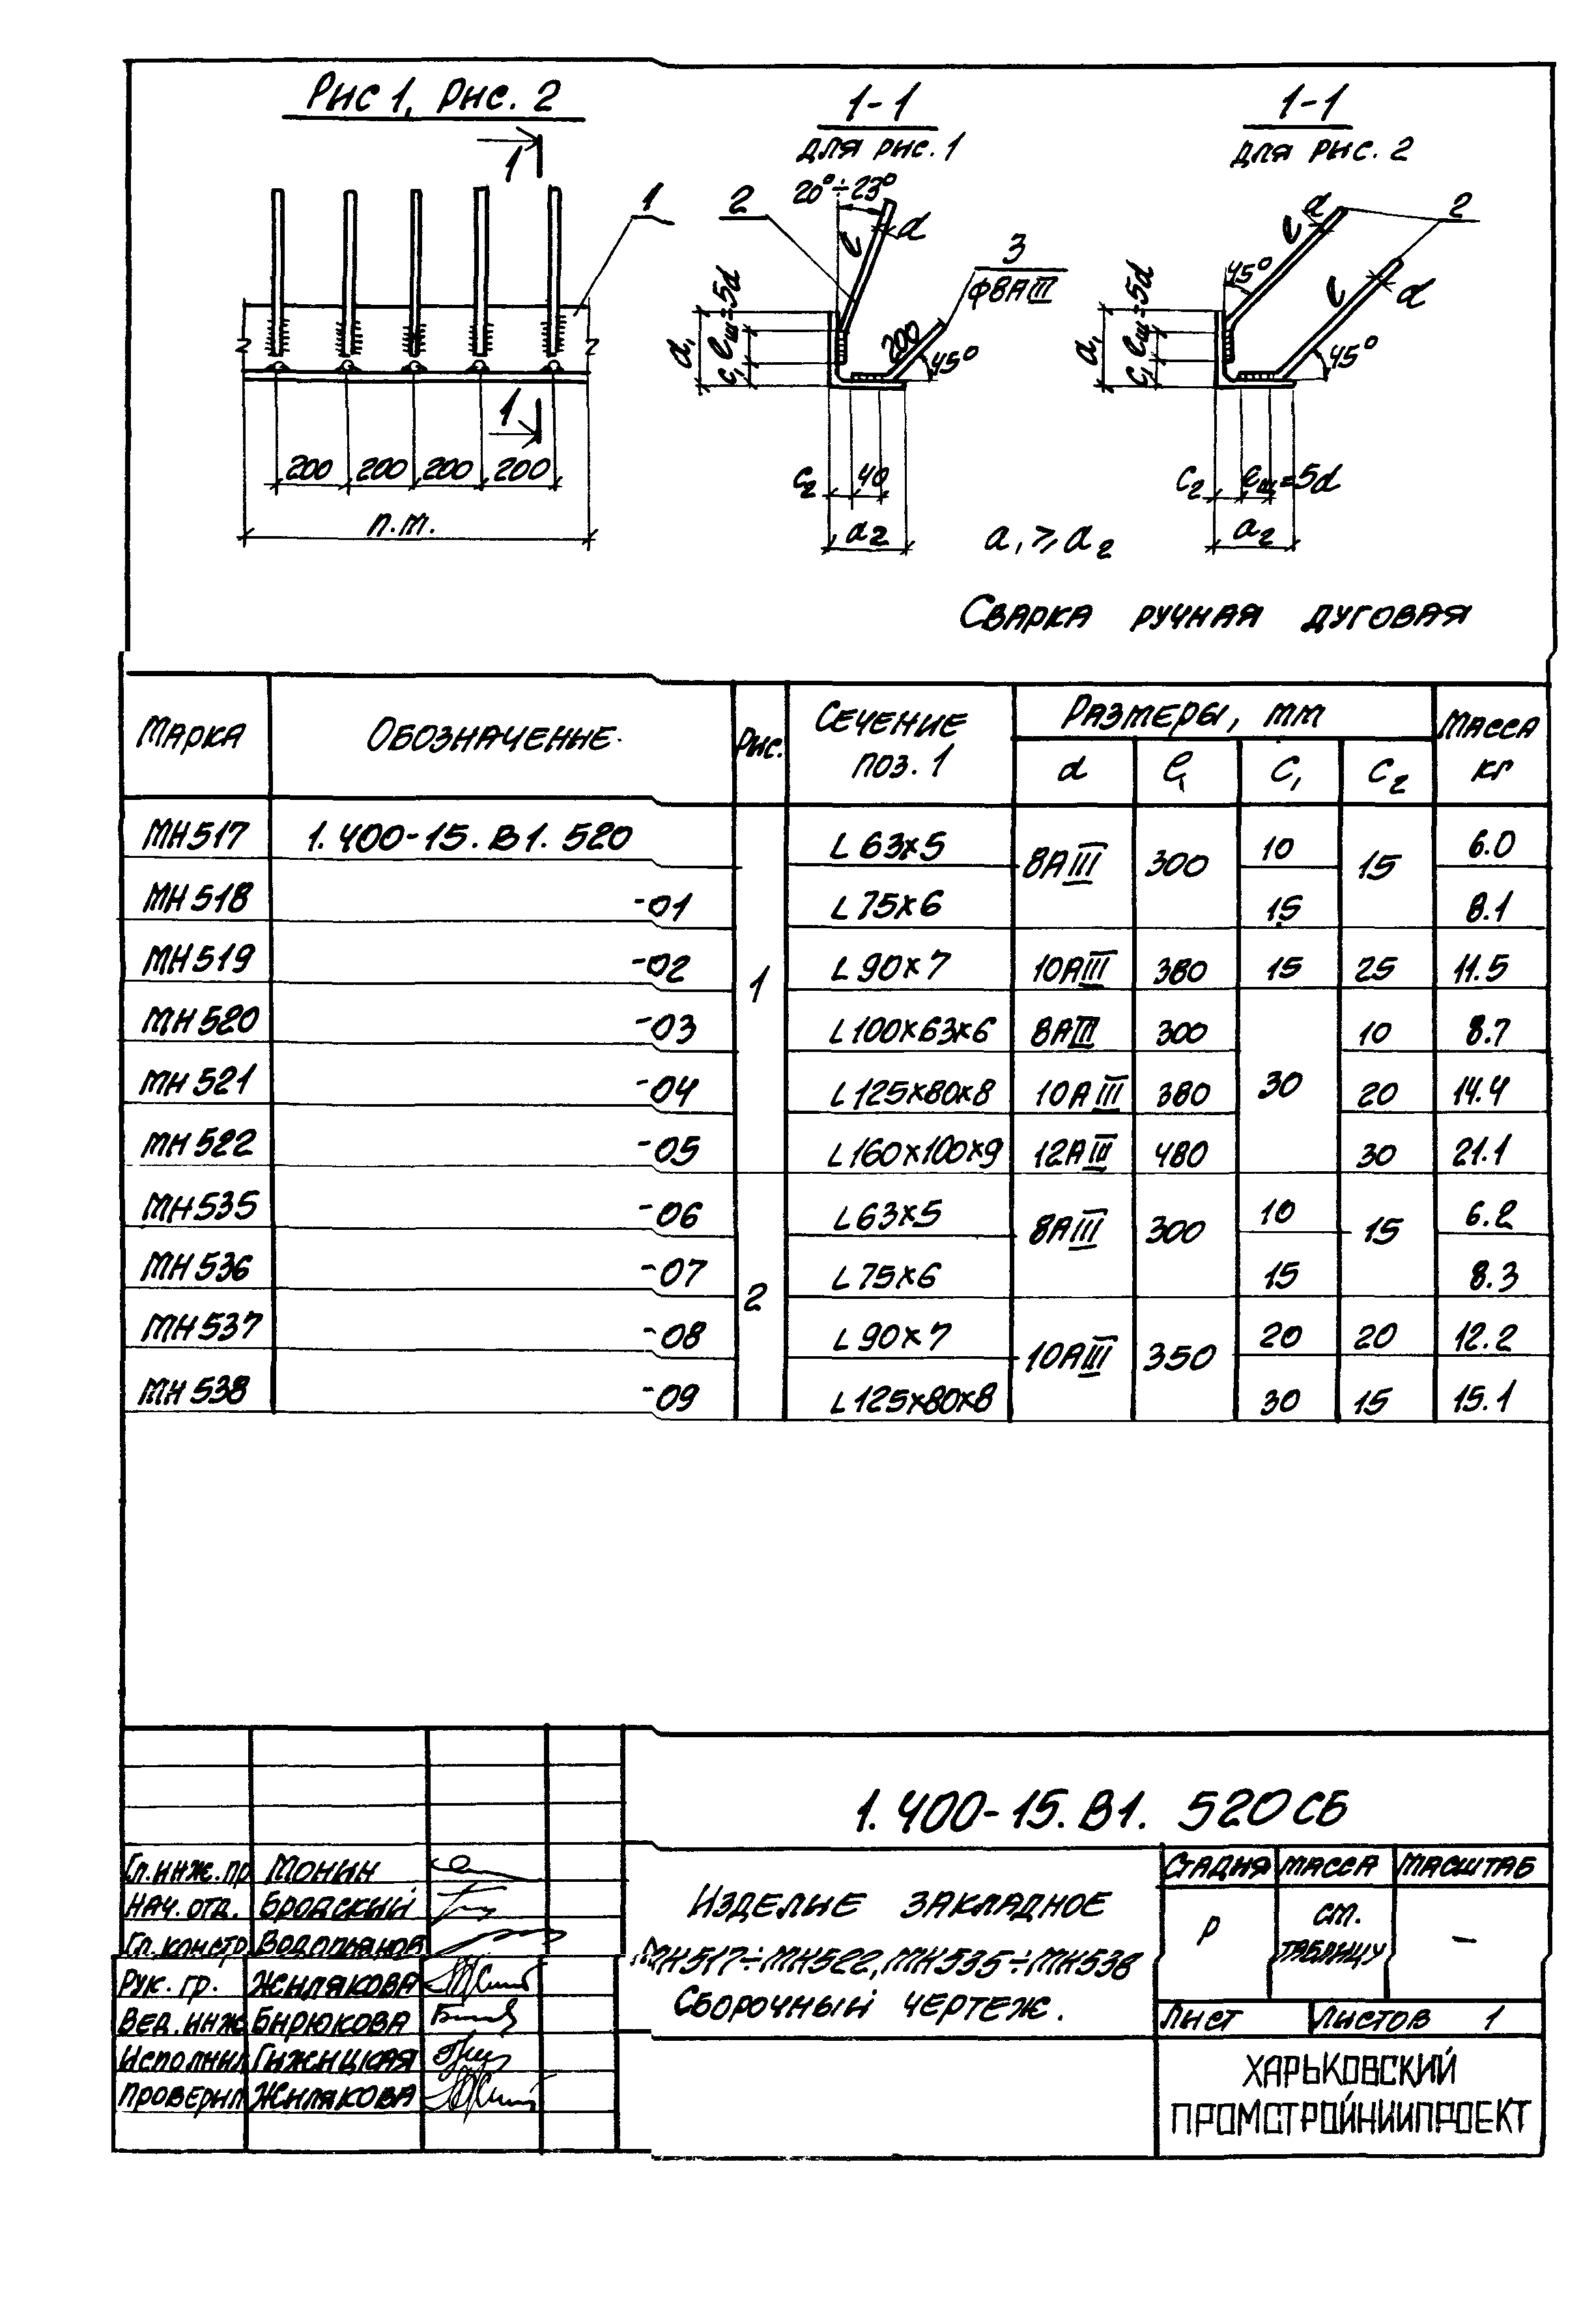 Рис 1, Рис. 2
1-1
для рис. 1
1-1
для рис. 2
1
1
2
20°÷23°
l
d
3
ф8АIII
a₁
c₁
lш=5d
200
45°
1
200 200 200 200
п.м.
c₂
40
a₂
a₁ ⩾ a₂
45°
l
d
l
d
2
a₁
c₁
lш=5d
45°
c₂
lш=5d
a₂
Сварка ручная дуговая
Марка Обозначение Рис. Сечение поз. 1 Размеры, мм Масса кг
d l₁ c₁ c₂
МН517 1.400-15.В1.520 1 L 63×5 8АIII 300 10 15 6.0
МН518 -01 L 75×6 15 8.1
МН519 -02 L 90×7 10АIII 380 15 25 11.5
МН520 -03 L 100×63×6 8АIII 300 30 10 8.7
МН521 -04 L 125×80×8 10АIII 380 20 14.4
МН522 -05 L 160×100×9 12АIII 480 30 21.1
МН535 -06 2 L 63×5 8АIII 300 10 15 6.2
МН536 -07 L 75×6 15 8.3
МН537 -08 L 90×7 10АIII 350 20 20 12.2
МН538 -09 L 125×80×8 30 15 15.1
1.400-15.В1. 520СБ
Гл.инж.пр Монин
Нач.отд. Бродский
Гл.констр Водопьянов
Рук. гр. Жилякова
Вед.инж Бирюкова
Исполнил Гижицкая
Проверил Жилякова
Изделие закладное
МН517÷МН522, МН535÷МН538
Сборочный чертеж.
Стадия Масса Масштаб
Р см. таблицу –
Лист Листов 1
ХАРЬКОВСКИЙ
ПРОМСТРОЙНИИПРОЕКТ